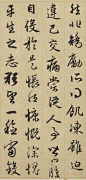 非矯勵所得飢凍雖迫
違己交病嘗從人事皆口腹
自役於是悵然慷慨深愧
平生之志猶望一稔當斂